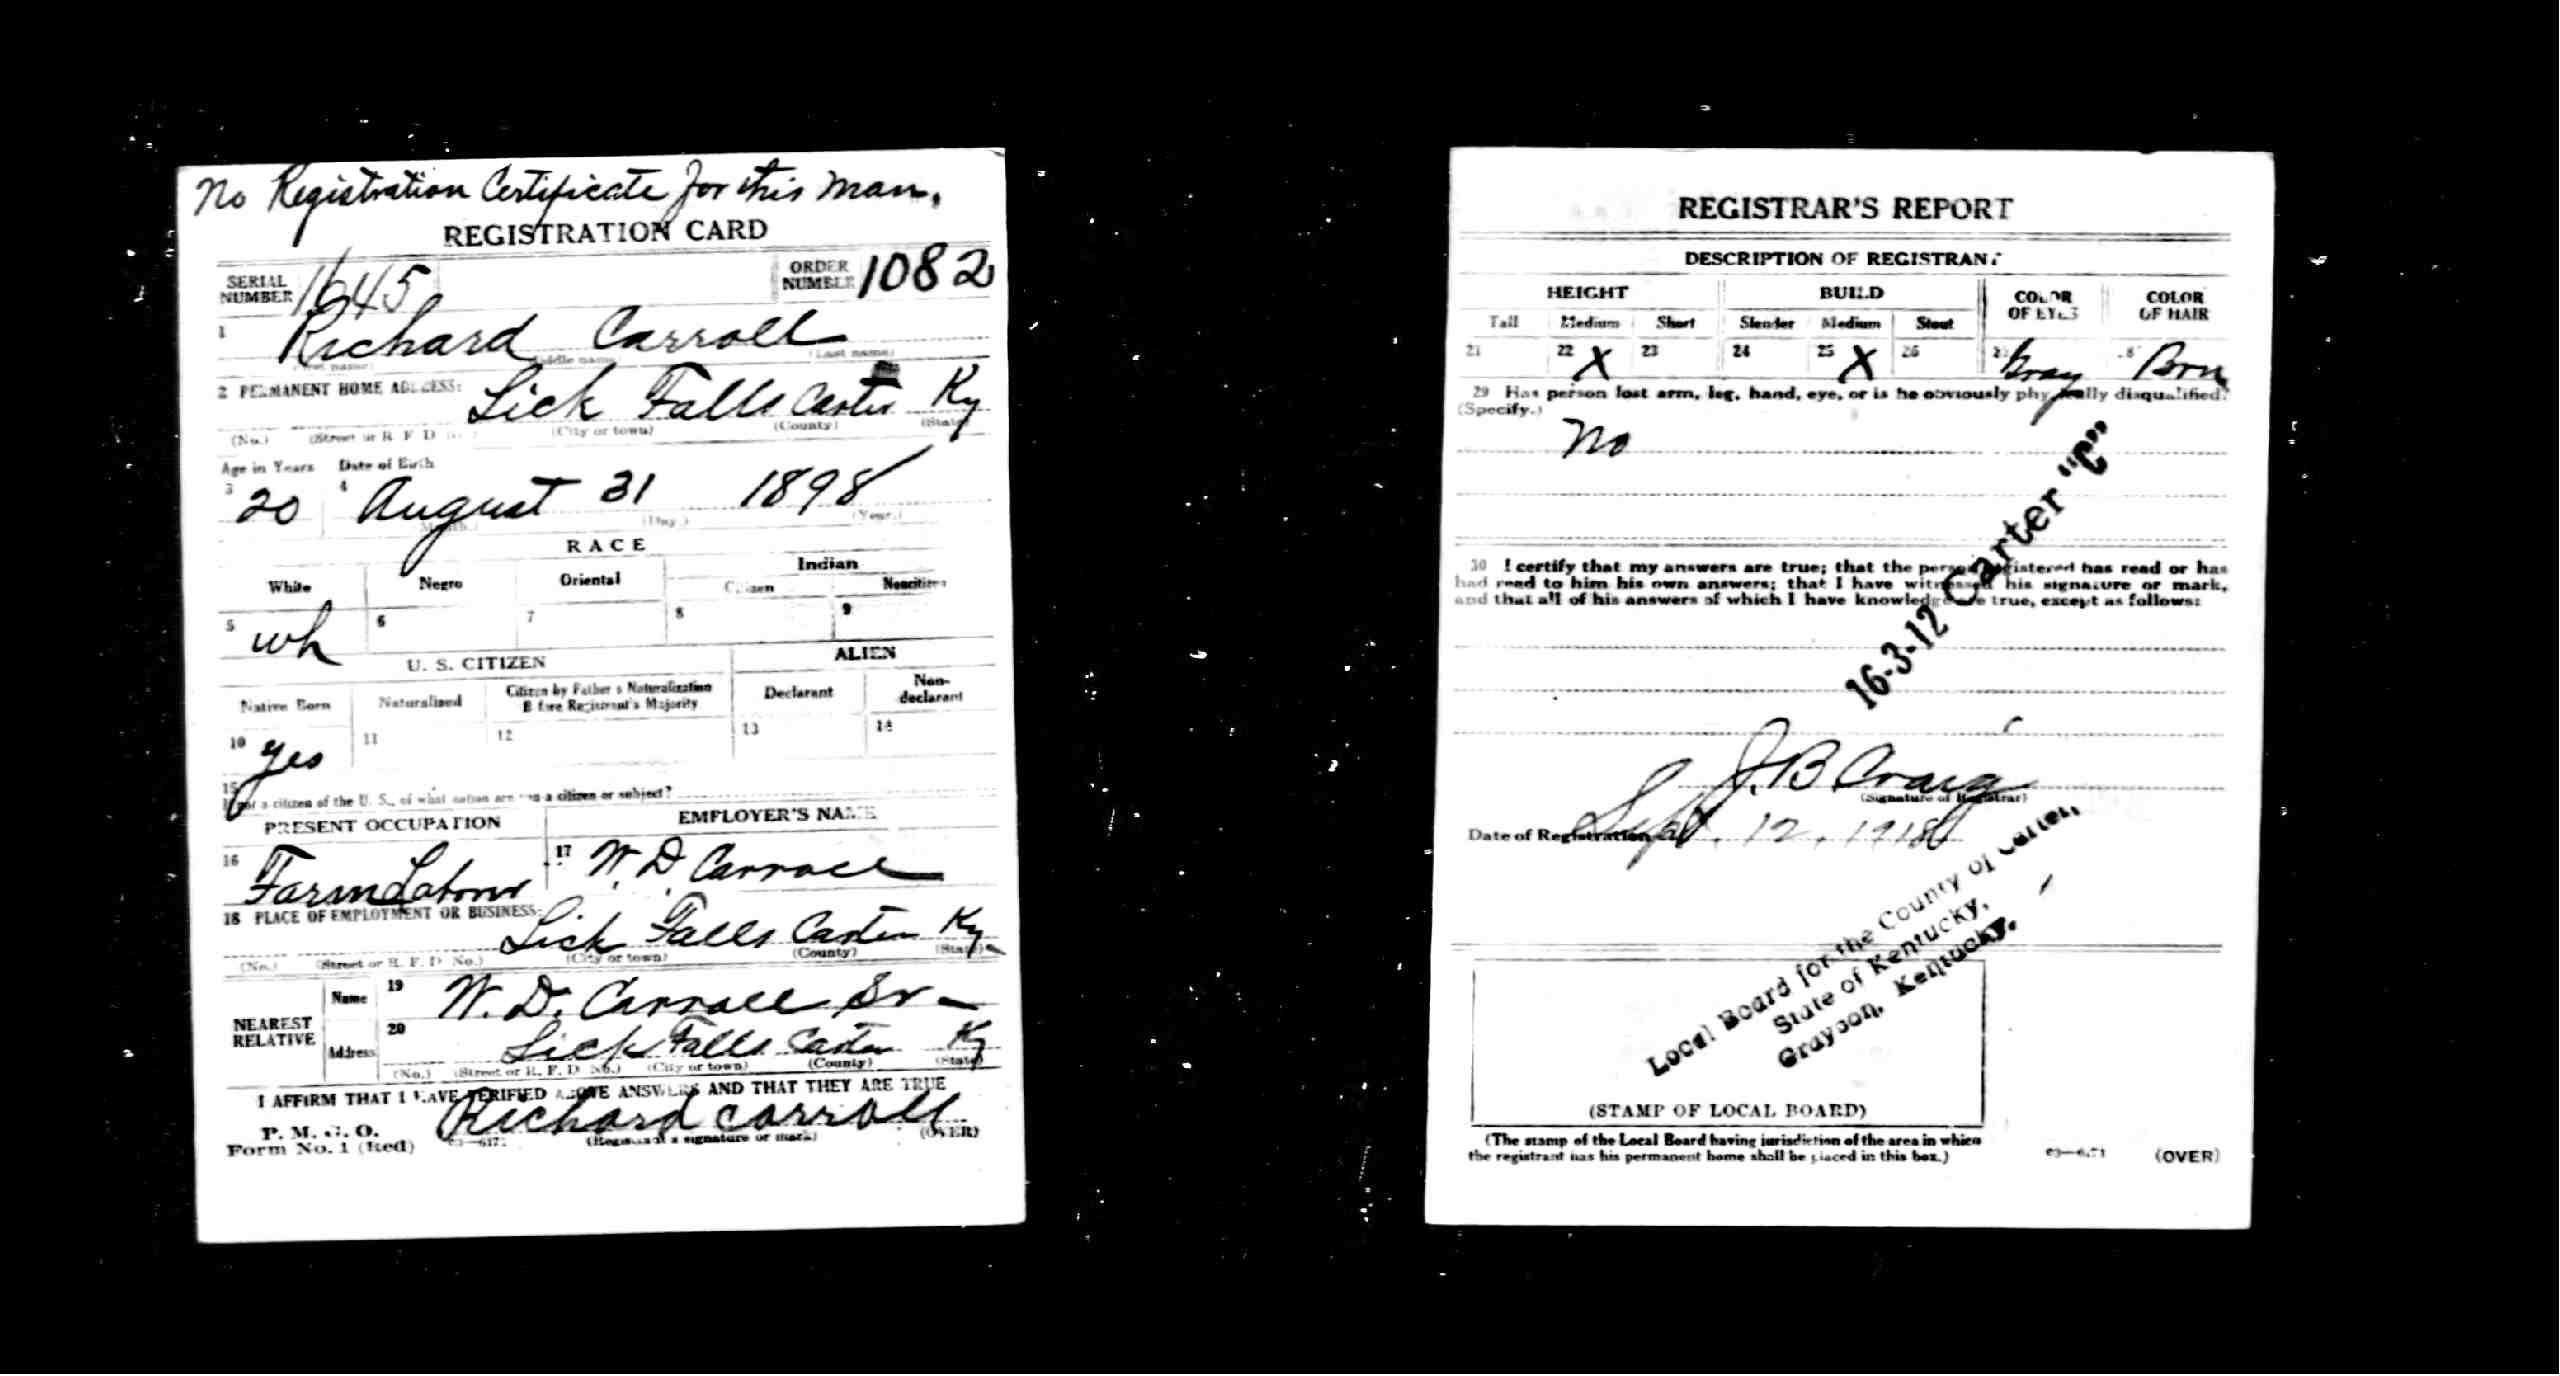 No Registration Certificate for this man.
REGISTRATION CARD
SERIAL NUMBER 1645 ORDER NUMBER 1082
1 Richard Carroll
(First name) (Middle name) (Last name)
2 PERMANENT HOME ADDRESS: Lick Falls Carter Ky
(No.) (Street or R. F. D. No.) (City or town) (County) (State)
Age in Years Date of Birth
3 20 4 August 31 1898
(Month.) (Day.) (Year.)
RACE
White Negro Oriental Indian
Citizen Noncitizen
5 wh 6 7 8 9
U. S. CITIZEN ALIEN
Native Born Naturalized Citizen by Father's Naturalization Before Registrant's Majority Declarant Non-declarant
10 yes 11 12 13 14
15
If not a citizen of the U. S., of what nation are you a citizen or subject?
PRESENT OCCUPATION EMPLOYER'S NAME
16 Farm Labour 17 W. D Carroll
18 PLACE OF EMPLOYMENT OR BUSINESS:
Lick Falls Carter Ky
(No.) (Street or R. F. D. No.) (City or town) (County) (State)
NEAREST RELATIVE
Name 19 W. D. Carroll Sr
Address 20 Lick Falls Carter Ky
(No.) (Street or R. F. D. No.) (City or town) (County) (State)
I AFFIRM THAT I HAVE VERIFIED ABOVE ANSWERS AND THAT THEY ARE TRUE
P. M. G. O.
Form No. 1 (Red) Richard Carroll
(Registrant's signature or mark) (OVER)
REGISTRAR'S REPORT
DESCRIPTION OF REGISTRANT
HEIGHT BUILD COLOR OF EYES COLOR OF HAIR
Tall Medium Short Slender Medium Stout
21 22 X 23 24 25 X 26 27 Gray 28 Brn
29 Has person lost arm, leg, hand, eye, or is he obviously physically disqualified?
(Specify.)
No
30 I certify that my answers are true; that the person registered has read or has
had read to him his own answers; that I have witnessed his signature or mark,
and that all of his answers of which I have knowledge are true, except as follows:
16-3-12 Carter "C"
J. B Craig
(Signature of Registrar)
Date of Registration Sept. 12, 1918
Local Board for the County of Carter,
State of Kentucky,
Grayson, Kentucky.
(STAMP OF LOCAL BOARD)
(The stamp of the Local Board having jurisdiction of the area in which
the registrant has his permanent home shall be placed in this box.)
(OVER)